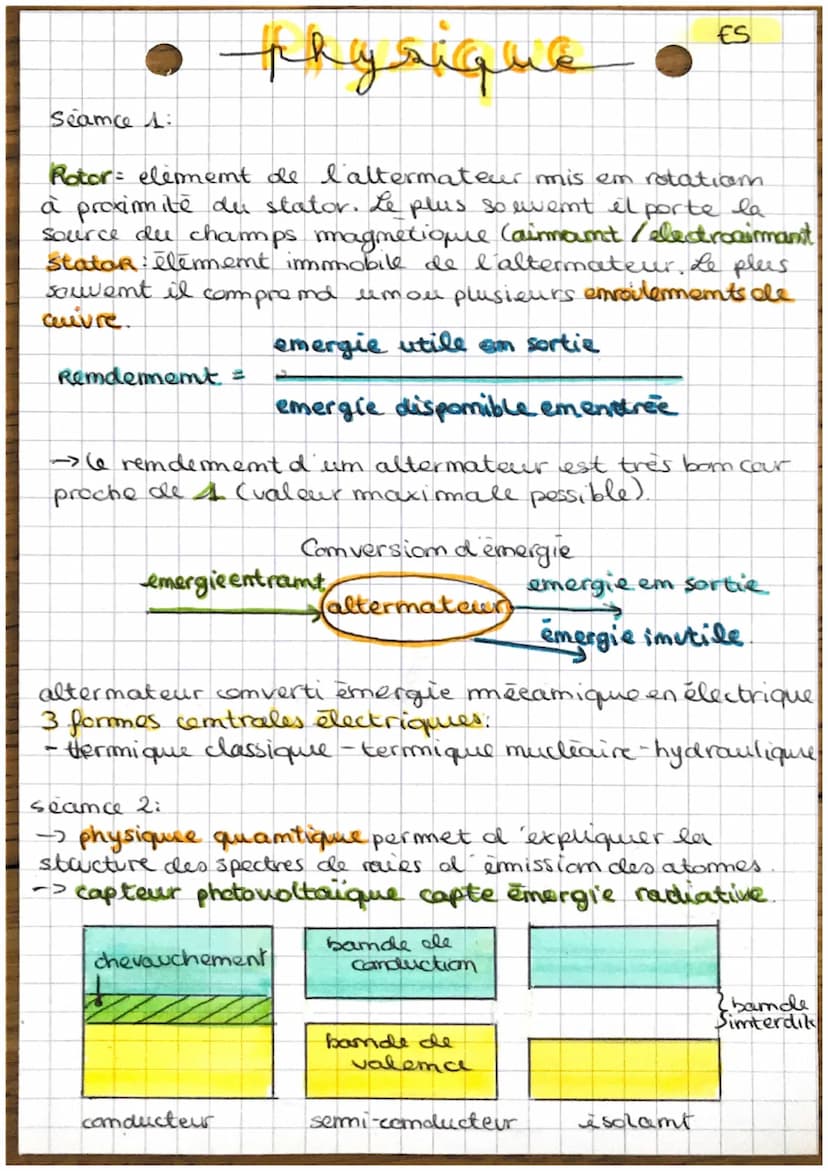 Physique
ES
Séance 1:
Rotor = élément de l'alternateur mis en rotation
à proximité du stator. Le plus souvent il porte la
source du champs magnétique (airmant / electroairmant
Stator : Élément immobile de l'alternateur. Le plus
souvent il comprend un ou plusieurs enroulements de
cuivre.
Rendement = energie utile en sortie
energie disponible en entrée
→ le rendement d'un alternateur est très bon car
proche de 1 (valeur maximale possible).
Conversion d'énergie
énergie entrant
alternateur
energie en sortie
énergie inutile.
alternateur converti énergie mécanique en électrique
3 formes centrales électriques:
- thermique classique - termique nucléaire - hydraulique
séance 2:
→ physique quantique permet d'expliquer la
structure des spectres de raies d'émission des atomes.
-> capteur photovoltaïque capte énergie radiative.
chevauchement
bande de
conduction
bande
interdite
bande de
valence
conducteur
semi-conducteur
isolant